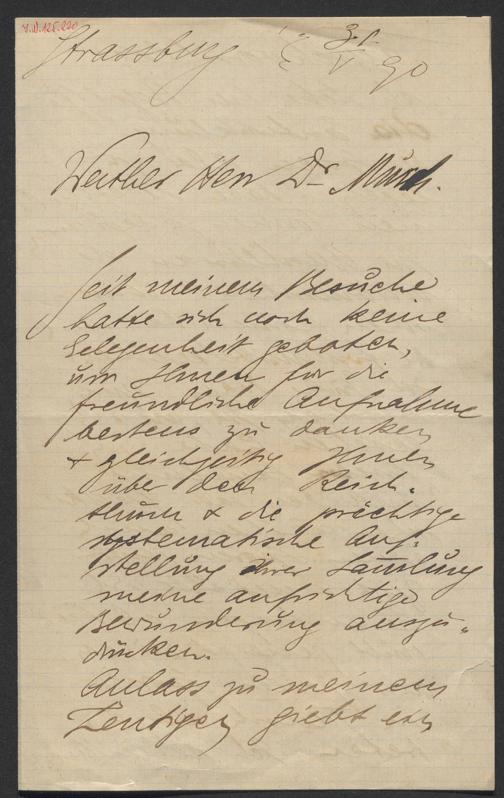 Strassburg 31/V 90
Werther Herr Dr Much.
Seit meinem Besuche
hatte sich noch keine
Gelegenheit geboten,
um Ihnen für die
freundliche Aufnahme
bestens zu danken
+ gleichzeitig Ihnen
über den Reich-
thum & die prächtige
systematische Auf-
stellung ihrer Sam̅lung
meine aufrichtige
Bewunderung auszu-
drücken.
Anlass zu meinem
Heutigen giebt ein